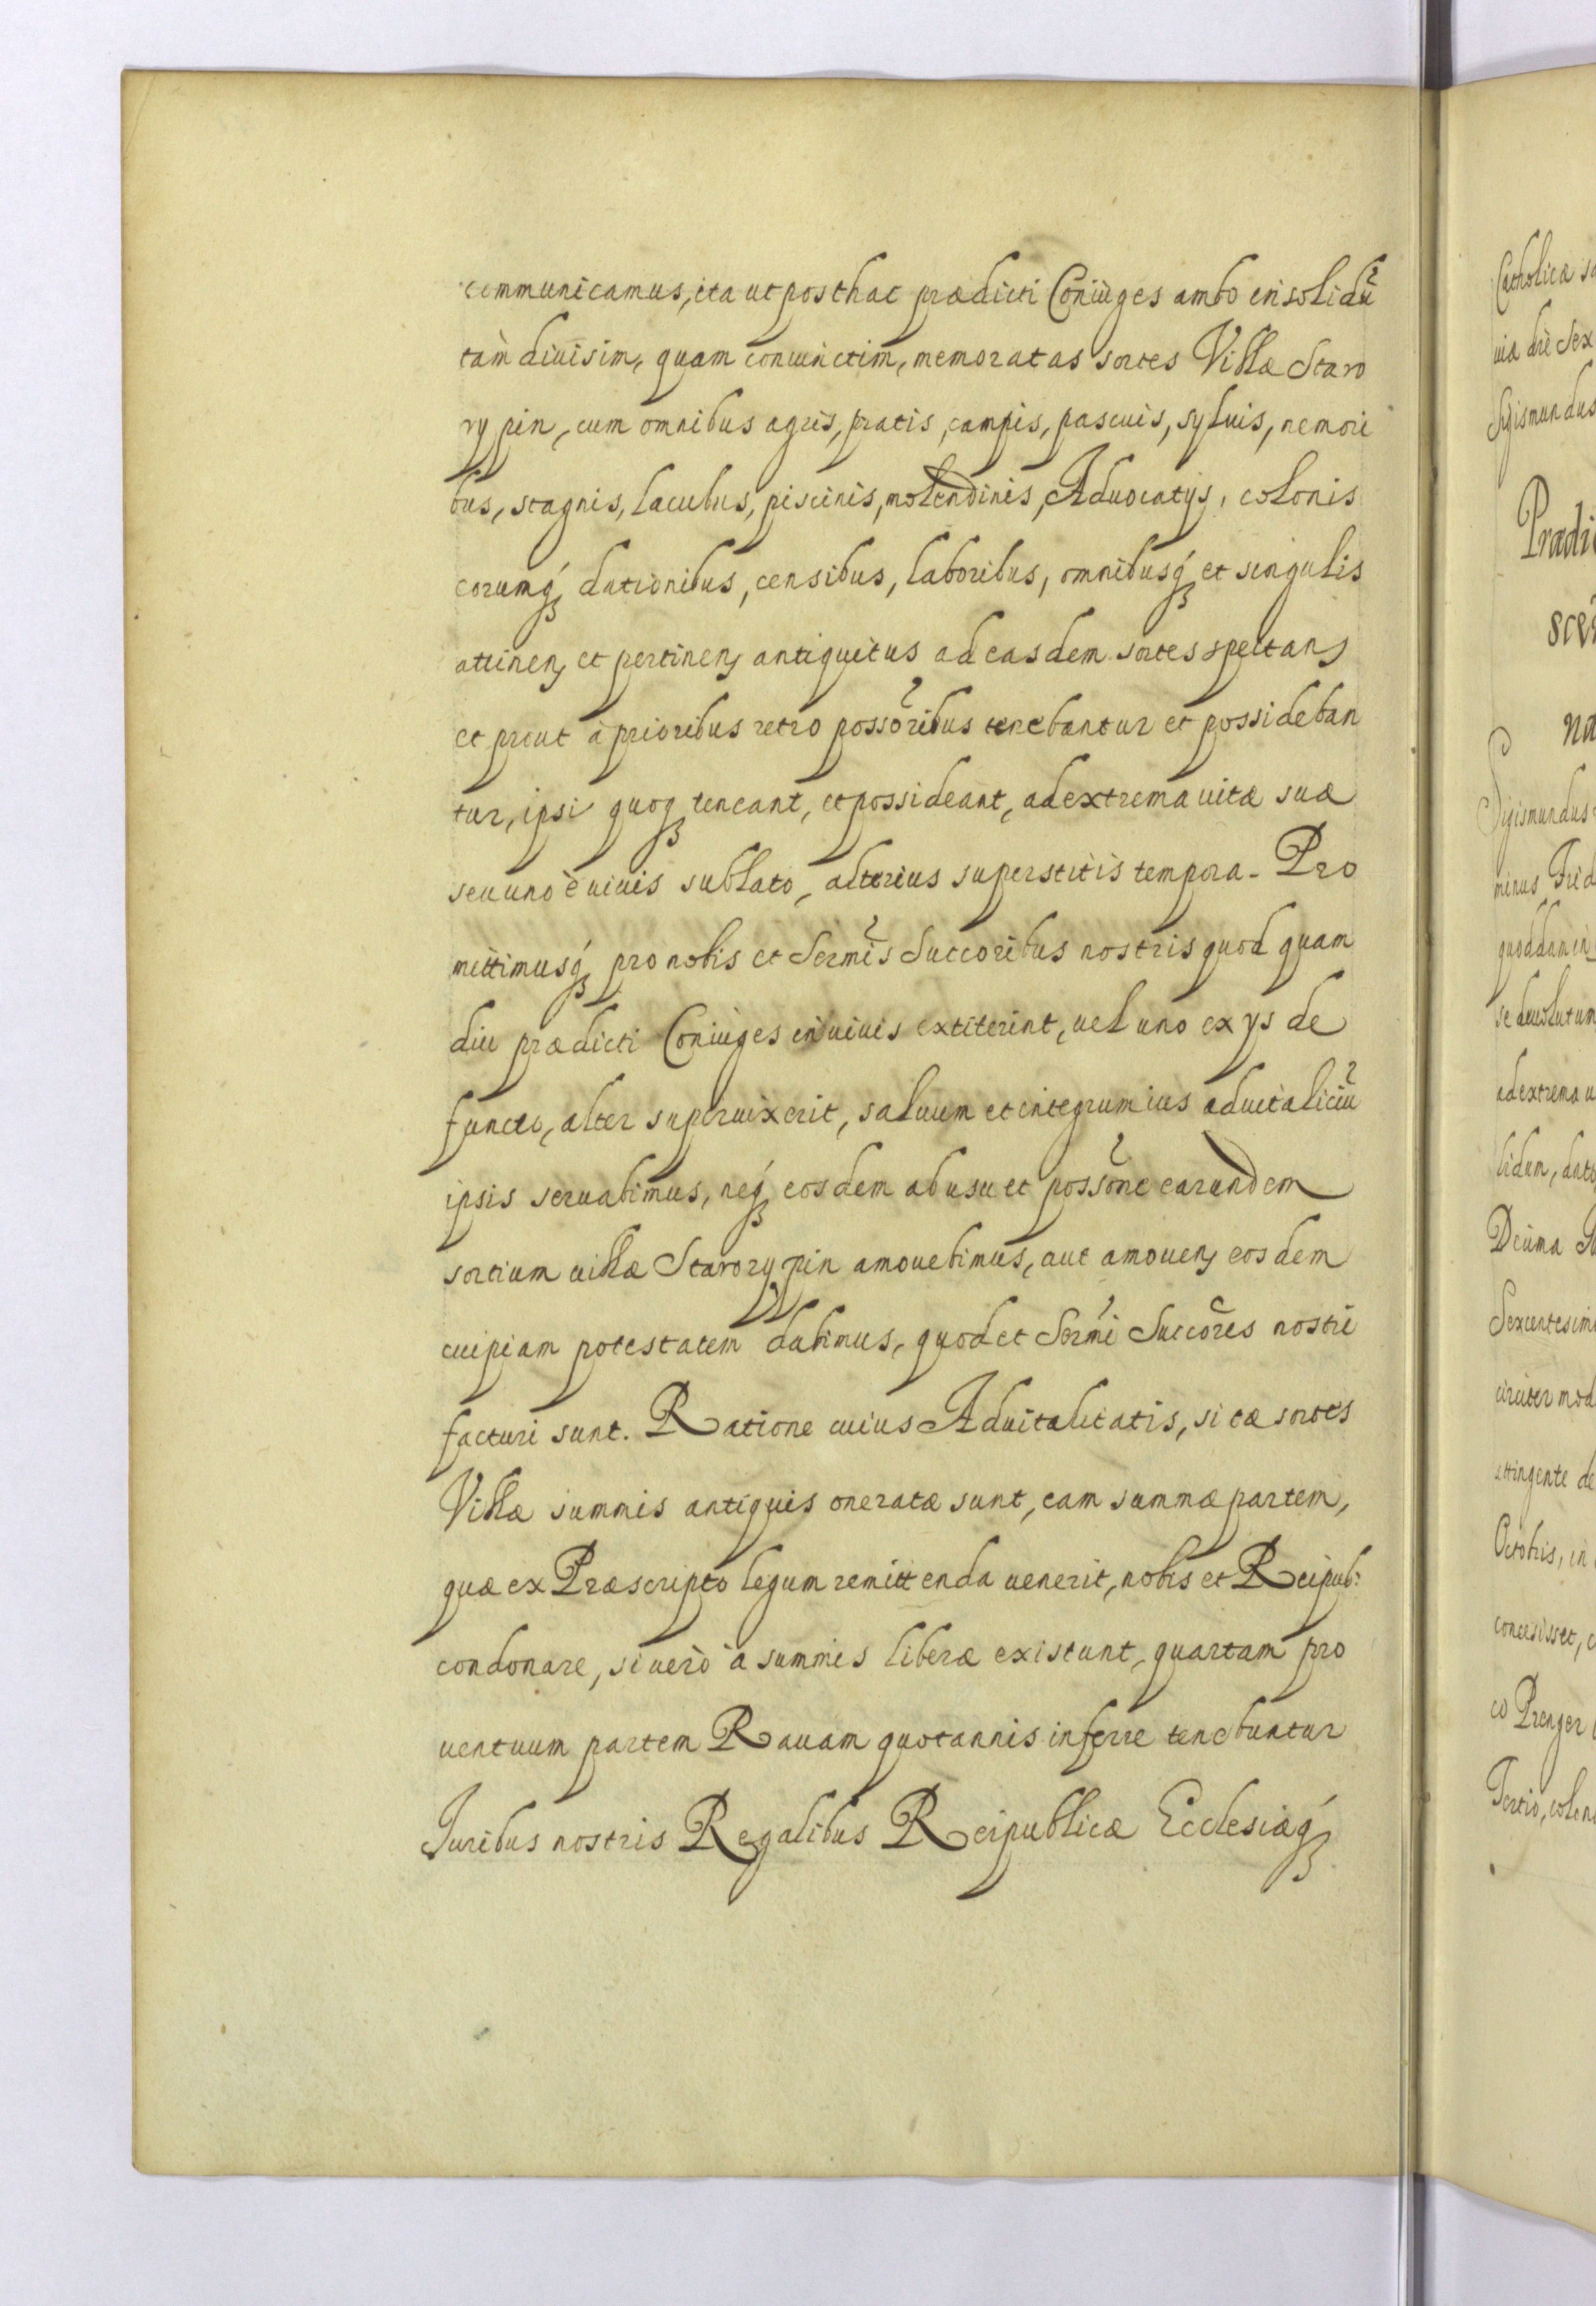 communicamus, ita ut posthac prædicti Coniuges ambo in solidũ
tam diuisim, quam coniunctim, memoratas sortes Villæ Staro
rypin, cum omnibus agris, pratis, campis, pascuis, syluis, nemori
bus, stagnis, lacubus, piscinis, molendinis, Aduocatys, colonis
eorumq́ꝫ dationibus, censibus, laboribus, omnibusq́ꝫ et singulis
attinenꝭ et pertinenꝭ antiquitus ad easdem sortes spectanꝭ
et prout à prioribus retro possõribus tenebantur et possideban
tur, ipsi quoqꝫ teneant, et possideant, ad extrema uitæ suæ
seu uno è uiuis sublato, alterius superstitis tempora. Pro
mittimusq́ꝫ pro nobis et Serm̃is Succoribus nostris quod quam
diu prædicti Coniuges in uiuis extiterint, uel uno ex ys de
functo, alter superuixerit, saluum et integrum ius aduitaliciũ
ipsis seruabimus, neq́ꝫ eosdem ab usu et possõne earundem
sortium uillæ Starorypin amouebimus, aut amouenꝭ eosdem
cuipiam potestatem dabimus, quod et Serm̃i Succõres nostri
facturi sunt. Ratione cuius Aduitalitatis, si eæ sortes
Villæ summis antiquis oneratæ sunt, eam summæ partem,
quæ ex Præscripto legum remittenda uenerit, nobis et Reipub:
condonare, si uerò à summis liberæ existunt, quartam pro
uentuum partem Rauam quotannis inferre tenebuntur
Iuribus nostris Regalibus Reipublicæ Ecclesiæq́ꝫ
Catholicæ
Sigismundus
Sigismundus
minus Frid
quoddam in
se deuolutum
ad extrema u
lidum, dato
Decima
Sexcentesimo
circiter mod
attingente de
Octobris, in
concesisset, c
eo Prenger
Tertio, colen